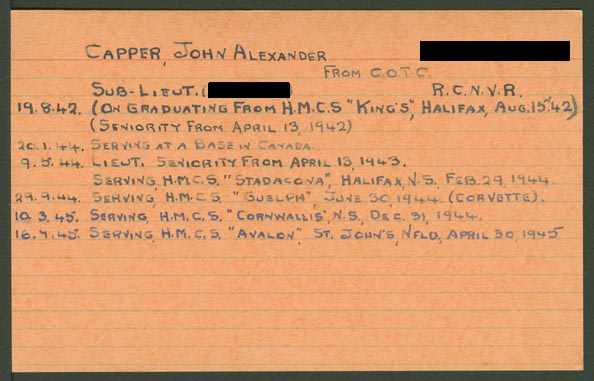 CAPPER, JOHN ALEXANDER
FROM C.O.T.C.
SUB-LIEUT. ( ) R.C.N.V.R.
19.8.42. (ON GRADUATING FROM H.M.C.S "KING'S", HALIFAX, AUG. 15 '42)
(SENIORITY FROM APRIL 13, 1942)
20.1.44. SERVING AT A BASE IN CANADA.
9.5.44. LIEUT. SENIORITY FROM APRIL 13, 1943.
SERVING H.M.C.S. "STADACONA", HALIFAX, N.S. FEB. 29, 1944.
29.9.44. SERVING H.M.C.S. "GUELPH", JUNE 30, 1944. (CORVETTE).
10.3.45. SERVING H.M.C.S. "CORNWALLIS", N.S. DEC. 31, 1944.
16.7.45. SERVING H.M.C.S. "AVALON" ST. JOHN'S, NFLD, APRIL 30, 1945